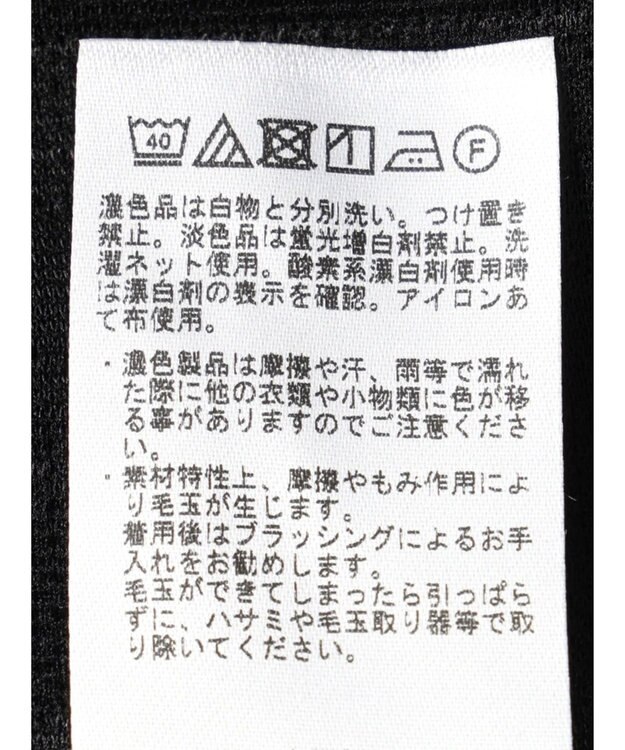 40
F
濃色品は白物と分別洗い。つけ置き
禁止。淡色品は蛍光増白剤禁止。洗
濯ネット使用。酸素系漂白剤使用時
は漂白剤の表示を確認。アイロンあ
て布使用。
・濃色製品は摩擦や汗、雨等で濡れ
た際に他の衣類や小物類に色が移
る事がありますのでご注意くださ
い。
・素材特性上、摩擦やもみ作用によ
り毛玉が生じます。
着用後はブラッシングによるお手
入れをお勧めします。
毛玉ができてしまったら引っぱら
ずに、ハサミや毛玉取り器等で取
り除いてください。